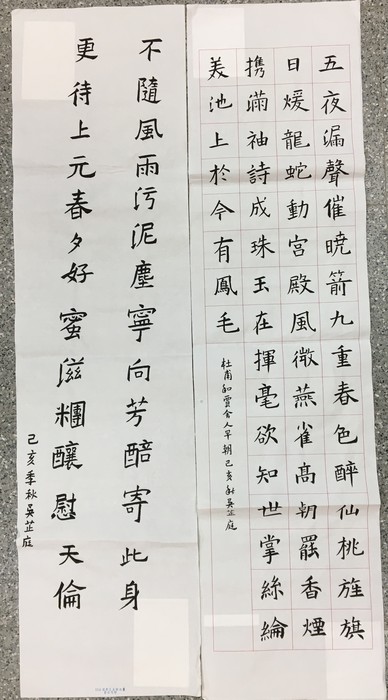 五夜漏聲催暁箭九重春色醉仙桃旌旗
日煖龍蛇動宮殿風微燕雀髙朝罷香煙
携滿袖詩成珠玉在揮毫欲知世掌絲綸
美池上於今有鳳毛
杜甫和賈舍人早朝己亥秋吳芷庭
不隨風雨污泥塵寧向芳醅寄此身
更待上元春夕好蜜滋糰釀慰天倫
己亥季秋吳芷庭